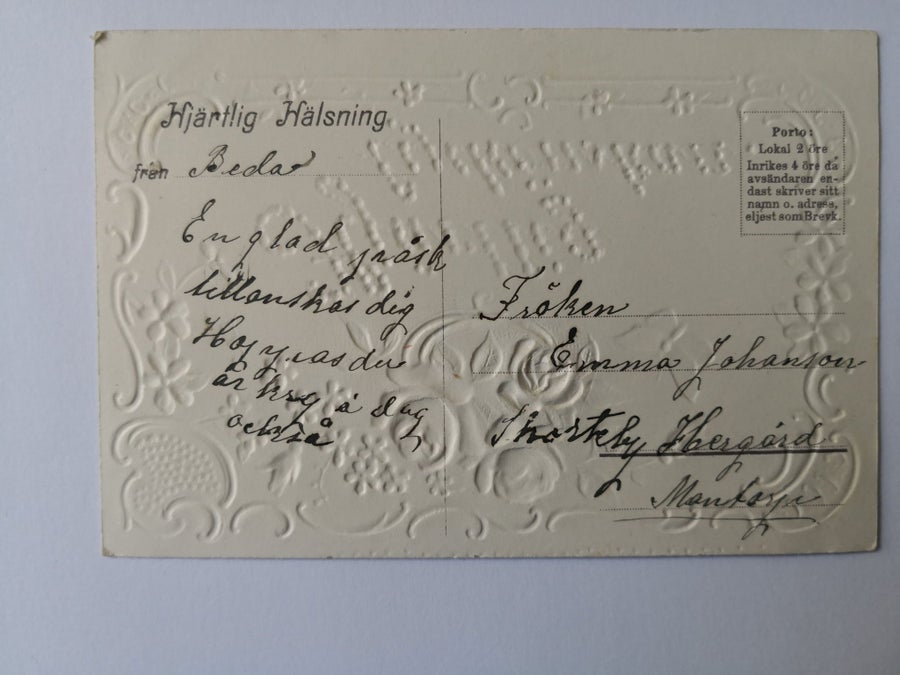 Hjärtlig Hälsning
från Beda
En glad påsk
tillönskas dig
Hoppas du
är kry i dag
också
Porto:
Lokal 2 öre
Inrikes 4 öre då
avsändaren en-
dast skriver sitt
namn o. adress,
eljest som Brevk.
Fröken
Emma Johanson
Hergård
Mantorp